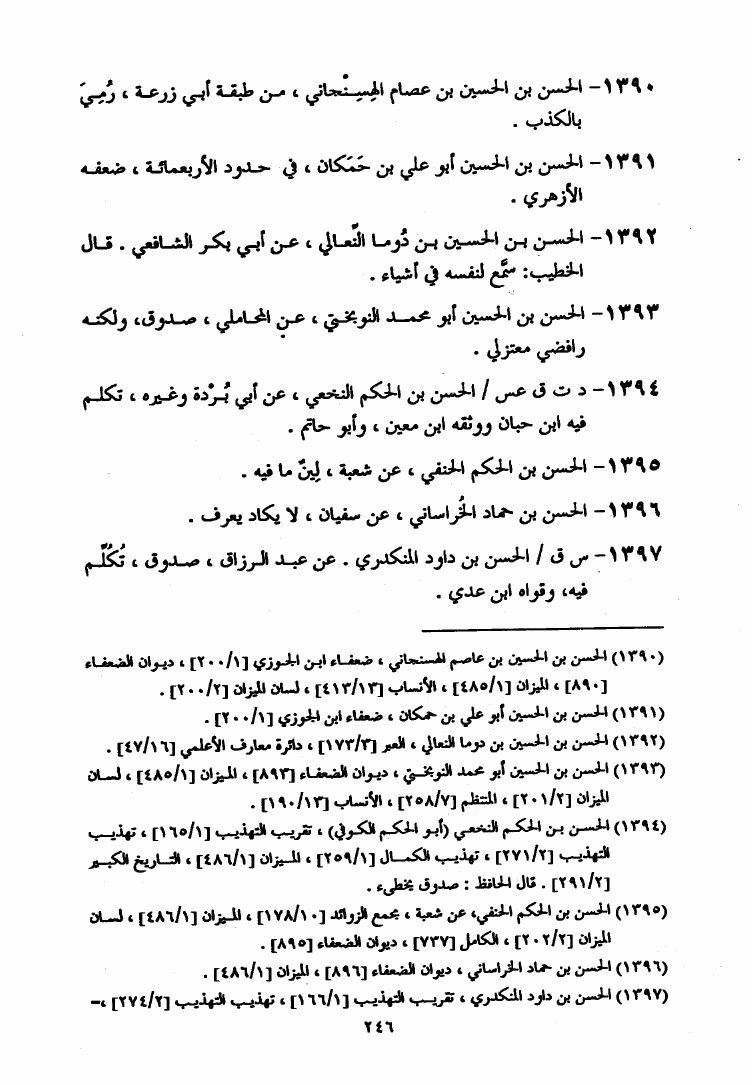 ١٣٩٠- الحسن بن الحسين بن عصام الهِسِنْجاني ، من طبقة أبي زرعة ، رُمِيَ
بالكذب .
١٣٩١- الحسن بن الحسين أبو علي بن حَمَكان ، في حدود الأربعمائة ، ضعفه
الأزهري .
١٣٩٢- الحسن بن الحسين بن دُوما النِّعالي ، عن أبي بكر الشافعي . قال
الخطيب: سمَّع لنفسه في أشياء .
١٣٩٣- الحسن بن الحسين أبو محمد النوبختي ، عن المحاملي ، صدوق، ولكنه
رافضي معتزلي .
١٣٩٤- د ت ق عس / الحسن بن الحكم النخعي ، عن أبي بُرْدة وغيره ، تكلم
فيه ابن حبان ووثقه ابن معين ، وأبو حاتم .
١٣٩٥- الحسن بن الحكم الحنفي ، عن شعبة ، لِينٌ ما فيه .
١٣٩٦- الحسن بن حماد الخُراساني ، عن سفيان ، لا يكاد يعرف .
١٣٩٧- س ق / الحسن بن داود المنكدري . عن عبد الرزاق ، صدوق ، تُكُلِّم
فيه، وقواه ابن عدي .
(١٣٩٠) الحسن بن الحسين بن عاصم الهسنجاني ، ضعفاء ابن الجوزي [٢٠٠/١] ، ديوان الضعفاء
[٨٩٠] ، الميزان [٤٨٥/١] ، الأنساب [٤١٣/١٣] ، لسان الميزان [٢٠٠/٢] .
(١٣٩١) الحسن بن الحسين أبو علي بن حمكان ، ضعفاء ابن الجوزي [٢٠٠/١] .
(١٣٩٢) الحسن بن الحسين بن دوما النعالي ، العبر [١٧٣/٣] ، دائرة معارف الأعلمي [٤٧/١٦] .
(١٣٩٣) الحسن بن الحسين أبو محمد النوبختي ، ديوان الضعفاء [٨٩٣] ، الميزان [٤٨٥/١] ، لسان
الميزان [٢٠١/٢] ، المنتظم [٢٥٨/٧] ، الأنساب [١٩٠/١٣] .
(١٣٩٤) الحسن بن الحكم النخعي (أبو الحكم الكوفي) ، تقريب التهذيب [١٦٥/١] ، تهذيب
التهذيب [٢٧١/٢] ، تهذيب الكمال [٢٥٩/١] ، الميزان [٤٨٦/١] ، التاريخ الكبير
[٢٩١/٢] . قال الحافظ : صدوق يخطىء .
(١٣٩٥) الحسن بن الحكم الحنفي، عن شعبة ، مجمع الزوائد [١٧٨/١٠] ، الميزان [٤٨٦/١] ، لسان
الميزان [٢٠٢/٢] ، الكامل [٧٣٧] ، ديوان الضعفاء [٨٩٥] .
(١٣٩٦) الحسن بن حماد الخراساني ، ديوان الضعفاء [٨٩٦] ، الميزان [٤٨٦/١] .
(١٣٩٧) الحسن بن داود المنكدري ، تقريب التهذيب [١٦٦/١] ، تهذيب التهذيب [٢٧٤/٢] ،-
٢٤٦